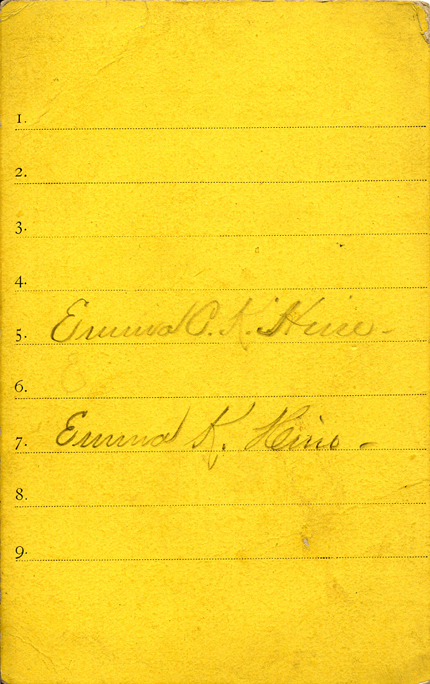 1.
2.
3.
4.
5. Emma C. K. Hine-
6. E
7. Emma K. Hine -
8.
9.